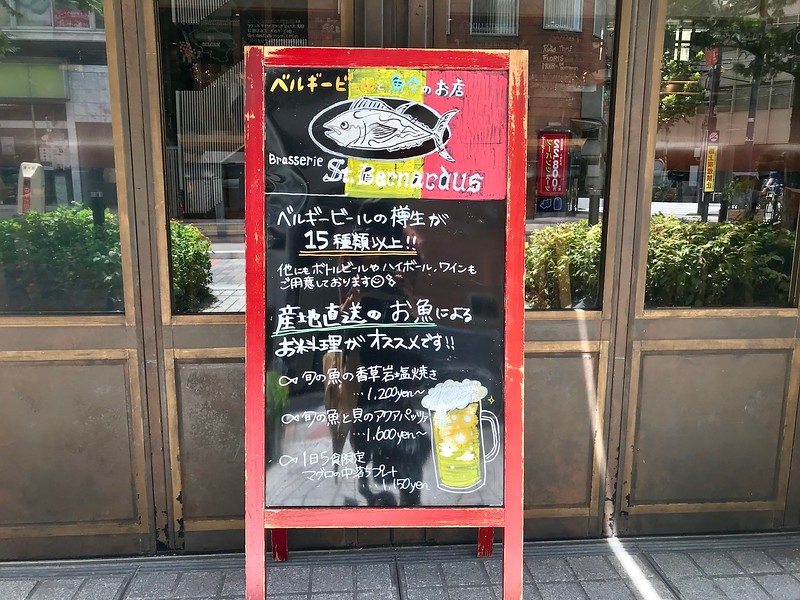 ベルギービールと魚介のお店
Brasserie
St. Bernardus
ベルギービールの樽生が
15種類以上!!
他にもボトルビールやハイボール、ワインも
ご用意しております
産地直送のお魚による
お料理がオススメです!!
旬の魚の香草岩塩焼き
…1,200yen~
旬の魚と貝のアクアパッツァ
…1,600yen~
1日5食限定
マグロの中落ちプレート
...1,150yen